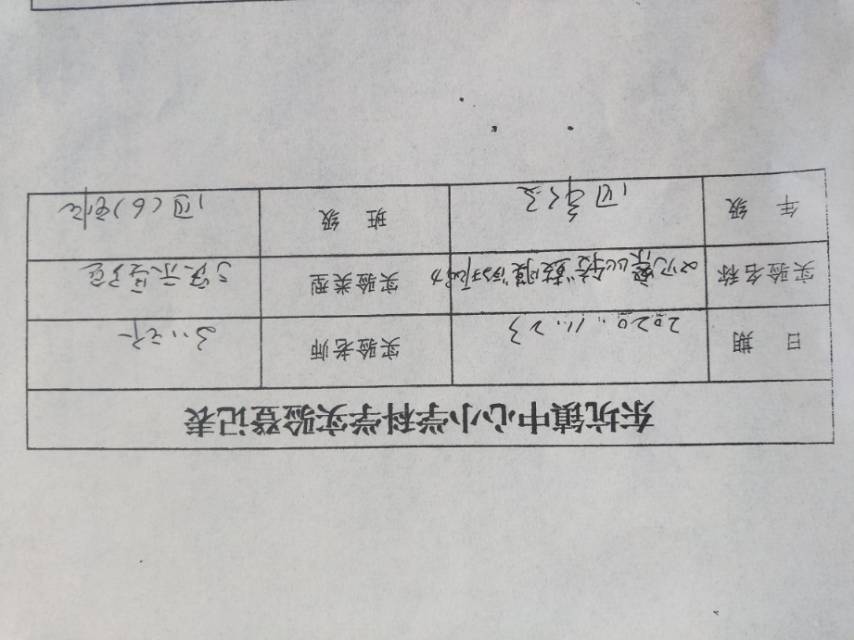 东坑镇中心小学科学实验登记表
日 期 2020.11.23 实验老师
实验名称 实验类型 演示实验
年 级 四年级 班 级 四(6)班